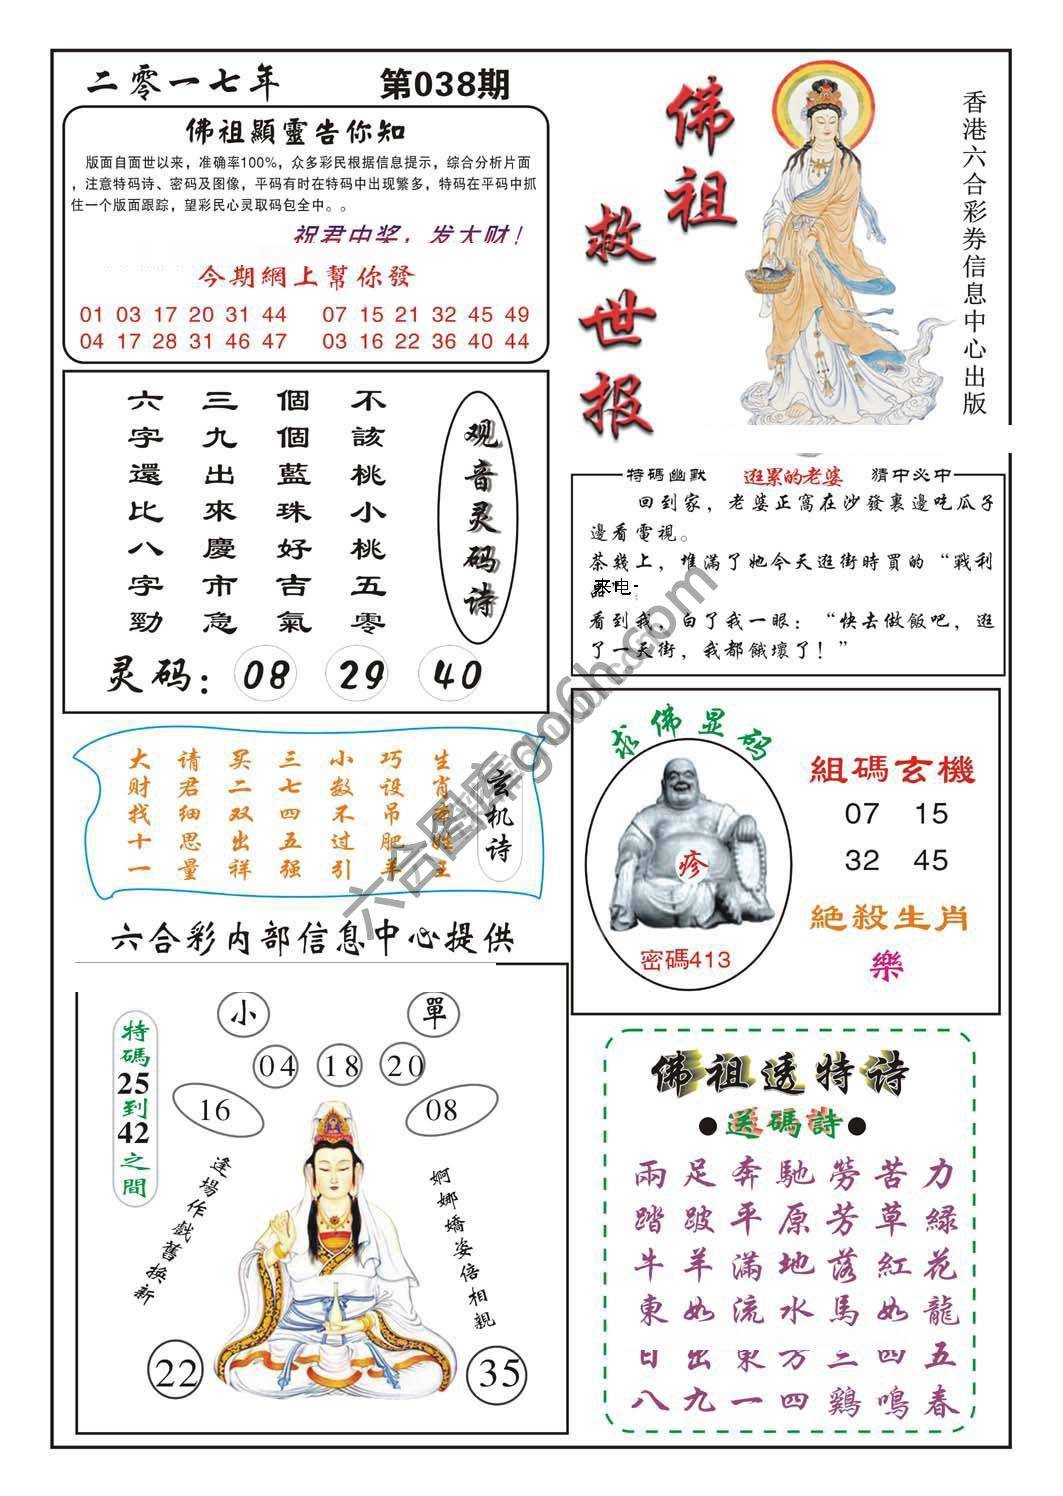 二零一七年 第038期
佛祖顯靈告你知
版面自面世以来，准确率100%，众多彩民根据信息提示，综合分析片面
，注意特码诗、密码及图像，平码有时在特码中出现繁多，特码在平码中抓
住一个版面跟踪，望彩民心灵取码包全中。。
祝君中奖，发大财！
今期網上幫你發
01 03 17 20 31 44 07 15 21 32 45 49
04 17 28 31 46 47 03 16 22 36 40 44
佛祖
救世报
香港六合彩券信息中心出版
观音灵码诗
不該桃小桃五零
個個藍珠好吉氣
三九出來慶市急
六字還比八字勁
灵码：08 29 40
特碼幽默 逛累的老婆 猜中必中
回到家，老婆正窩在沙發裏邊吃瓜子
邊看電視。
茶幾上，堆滿了她今天逛街時買的“戰利
来电-
看到我，白了我一眼：“快去做飯吧，逛
了一天街，我都餓壞了！”
玄机诗
生肖有姓王
巧设吊肥羊
小数不过引
三七四五强
买二双出祥
请君细思量
大财找十一
六合彩内部信息中心提供
求佛显码
疹
密碼413
組碼玄機
07 15
32 45
絕殺生肖
樂
特碼25到42之間
小 單
04 18 20
16 08
逢場作戲舊換新
婀娜嬌姿倍相親
22 35
佛祖透特诗
●送碼詩●
兩足奔馳勞苦力
踏跛平原芳草緑
牛羊滿地落紅花
東如流水馬如龍
日出東方三四五
八九一四鷄鳴春
六合图库go6h.com